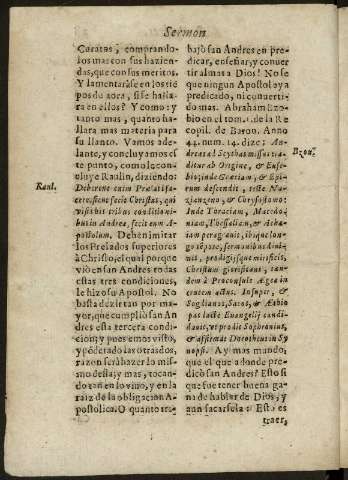 Sermon
Curatas, comprando-
los mas con sus hazien-
das, que con sus meritos.
Y lamentaráse en los tié
pos de aora, si se halla-
ra en ellos? Y como: y
tanto mas, quanto ha-
llara mas materia para
su llanto. Vamos ade-
lante, y concluyamos el
te punto, como le con-
cluye Raulin, diziendo:
Raul.
Debirent enim Prælati fa-
cere, sicut fecit Christus, qui
visis his tribus conditioni-
bus in Andrea, fecit eum A-
postolum. Deben imitar
los Prelados superiores
à Christo, el qual porque
viò en san Andres todas
estas tres condiciones,
le hizo su Apostol. No
basta dezir tan por ma-
yor, que cumpliò san An
dres esta tercera condi-
cion; y pues emos visto,
y pōderado las otras dos,
razon serà hazer lo mis-
mo desta; y mas, tocan-
do tan en lo vivo, y en la
raiz de la obligacion A-
postolica. O quanto tra-
bajò san Andres en pre-
dicar, enseñar, y conver
tir almas a Dios! No se
que ningun Apostol aya
predicado, ni converti-
do mas. Abraham Ezo-
bio en el tom. 1. de la Re
copil. de Baron. Anno
44. num. 14. dize: An-
Bzou.
dreas ad Scythas missus tra-
ditur ab Origine, & Euse-
bio; inde Græciam, & Epi-
rum descendit, teste Na-
zianzeno, & Chrysostomo:
Inde Toraciam, Macedo-
niam, Thessaliam, & Acha-
iam peragravit, ibique lon-
go tēpore, sermonibus divi-
nis, prodigijsque mirificis,
Christum significans, tan-
dem à Proconsule Ægea in
crucem actus. Insuper, &
Sogdianos, Sacos, & Æthio
pas lacte Evangelij candi-
davit, vt prodit Sophronius,
& assirmat Dorotheus in Sy
nopsi. Ay mas mando;
que el que a donde pre-
dicò san Andres? Esto si
que fue tener buena ga-
na de hablar de Dios, y
aun sacarsela: Esto es
traer,